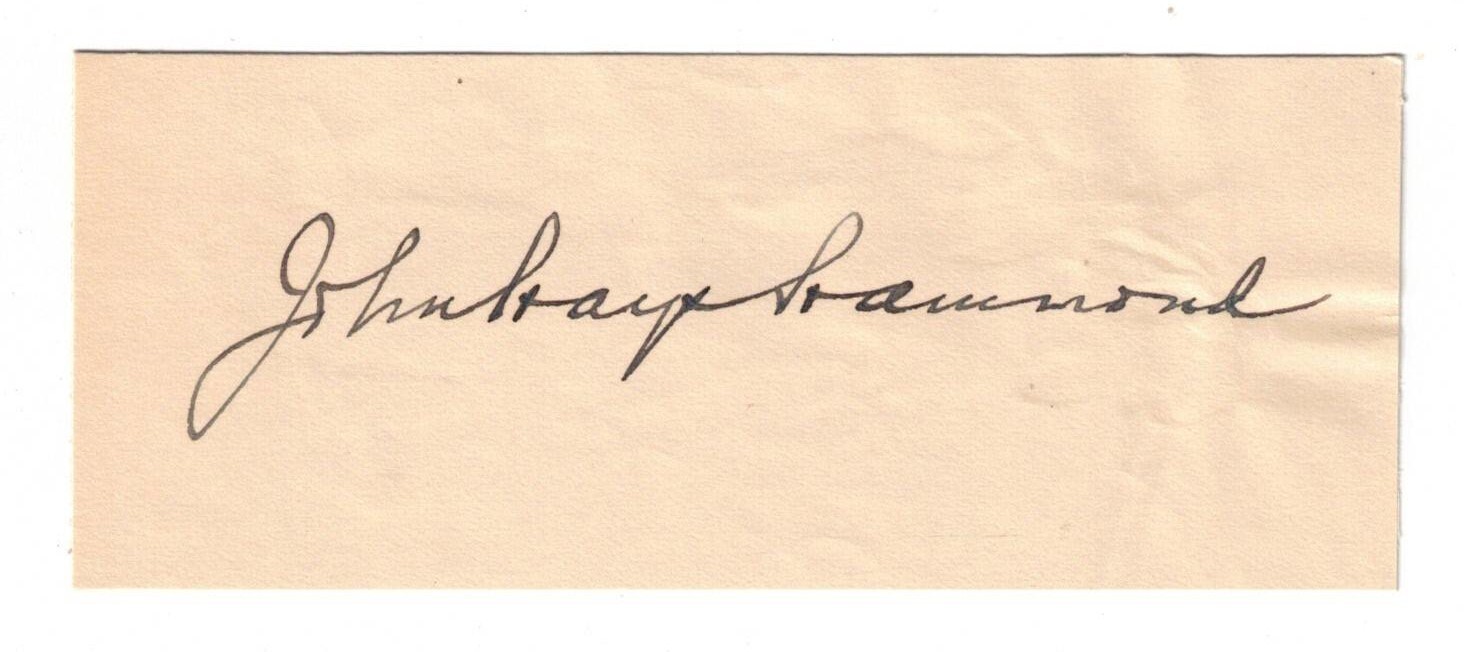 John Hays Hammond